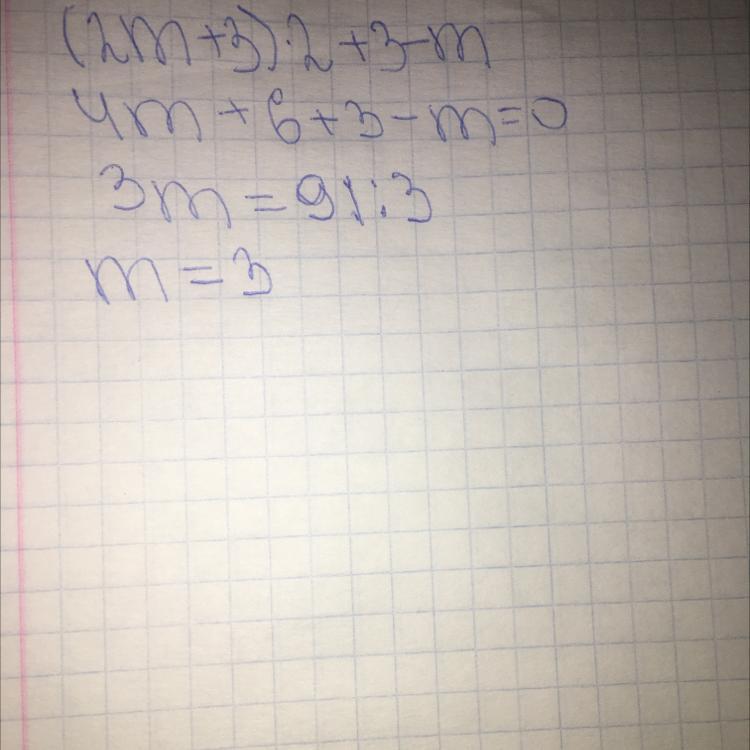 (2m+3)·2+3-m
4m+6+3-m=0
3m=9|:3
m=3